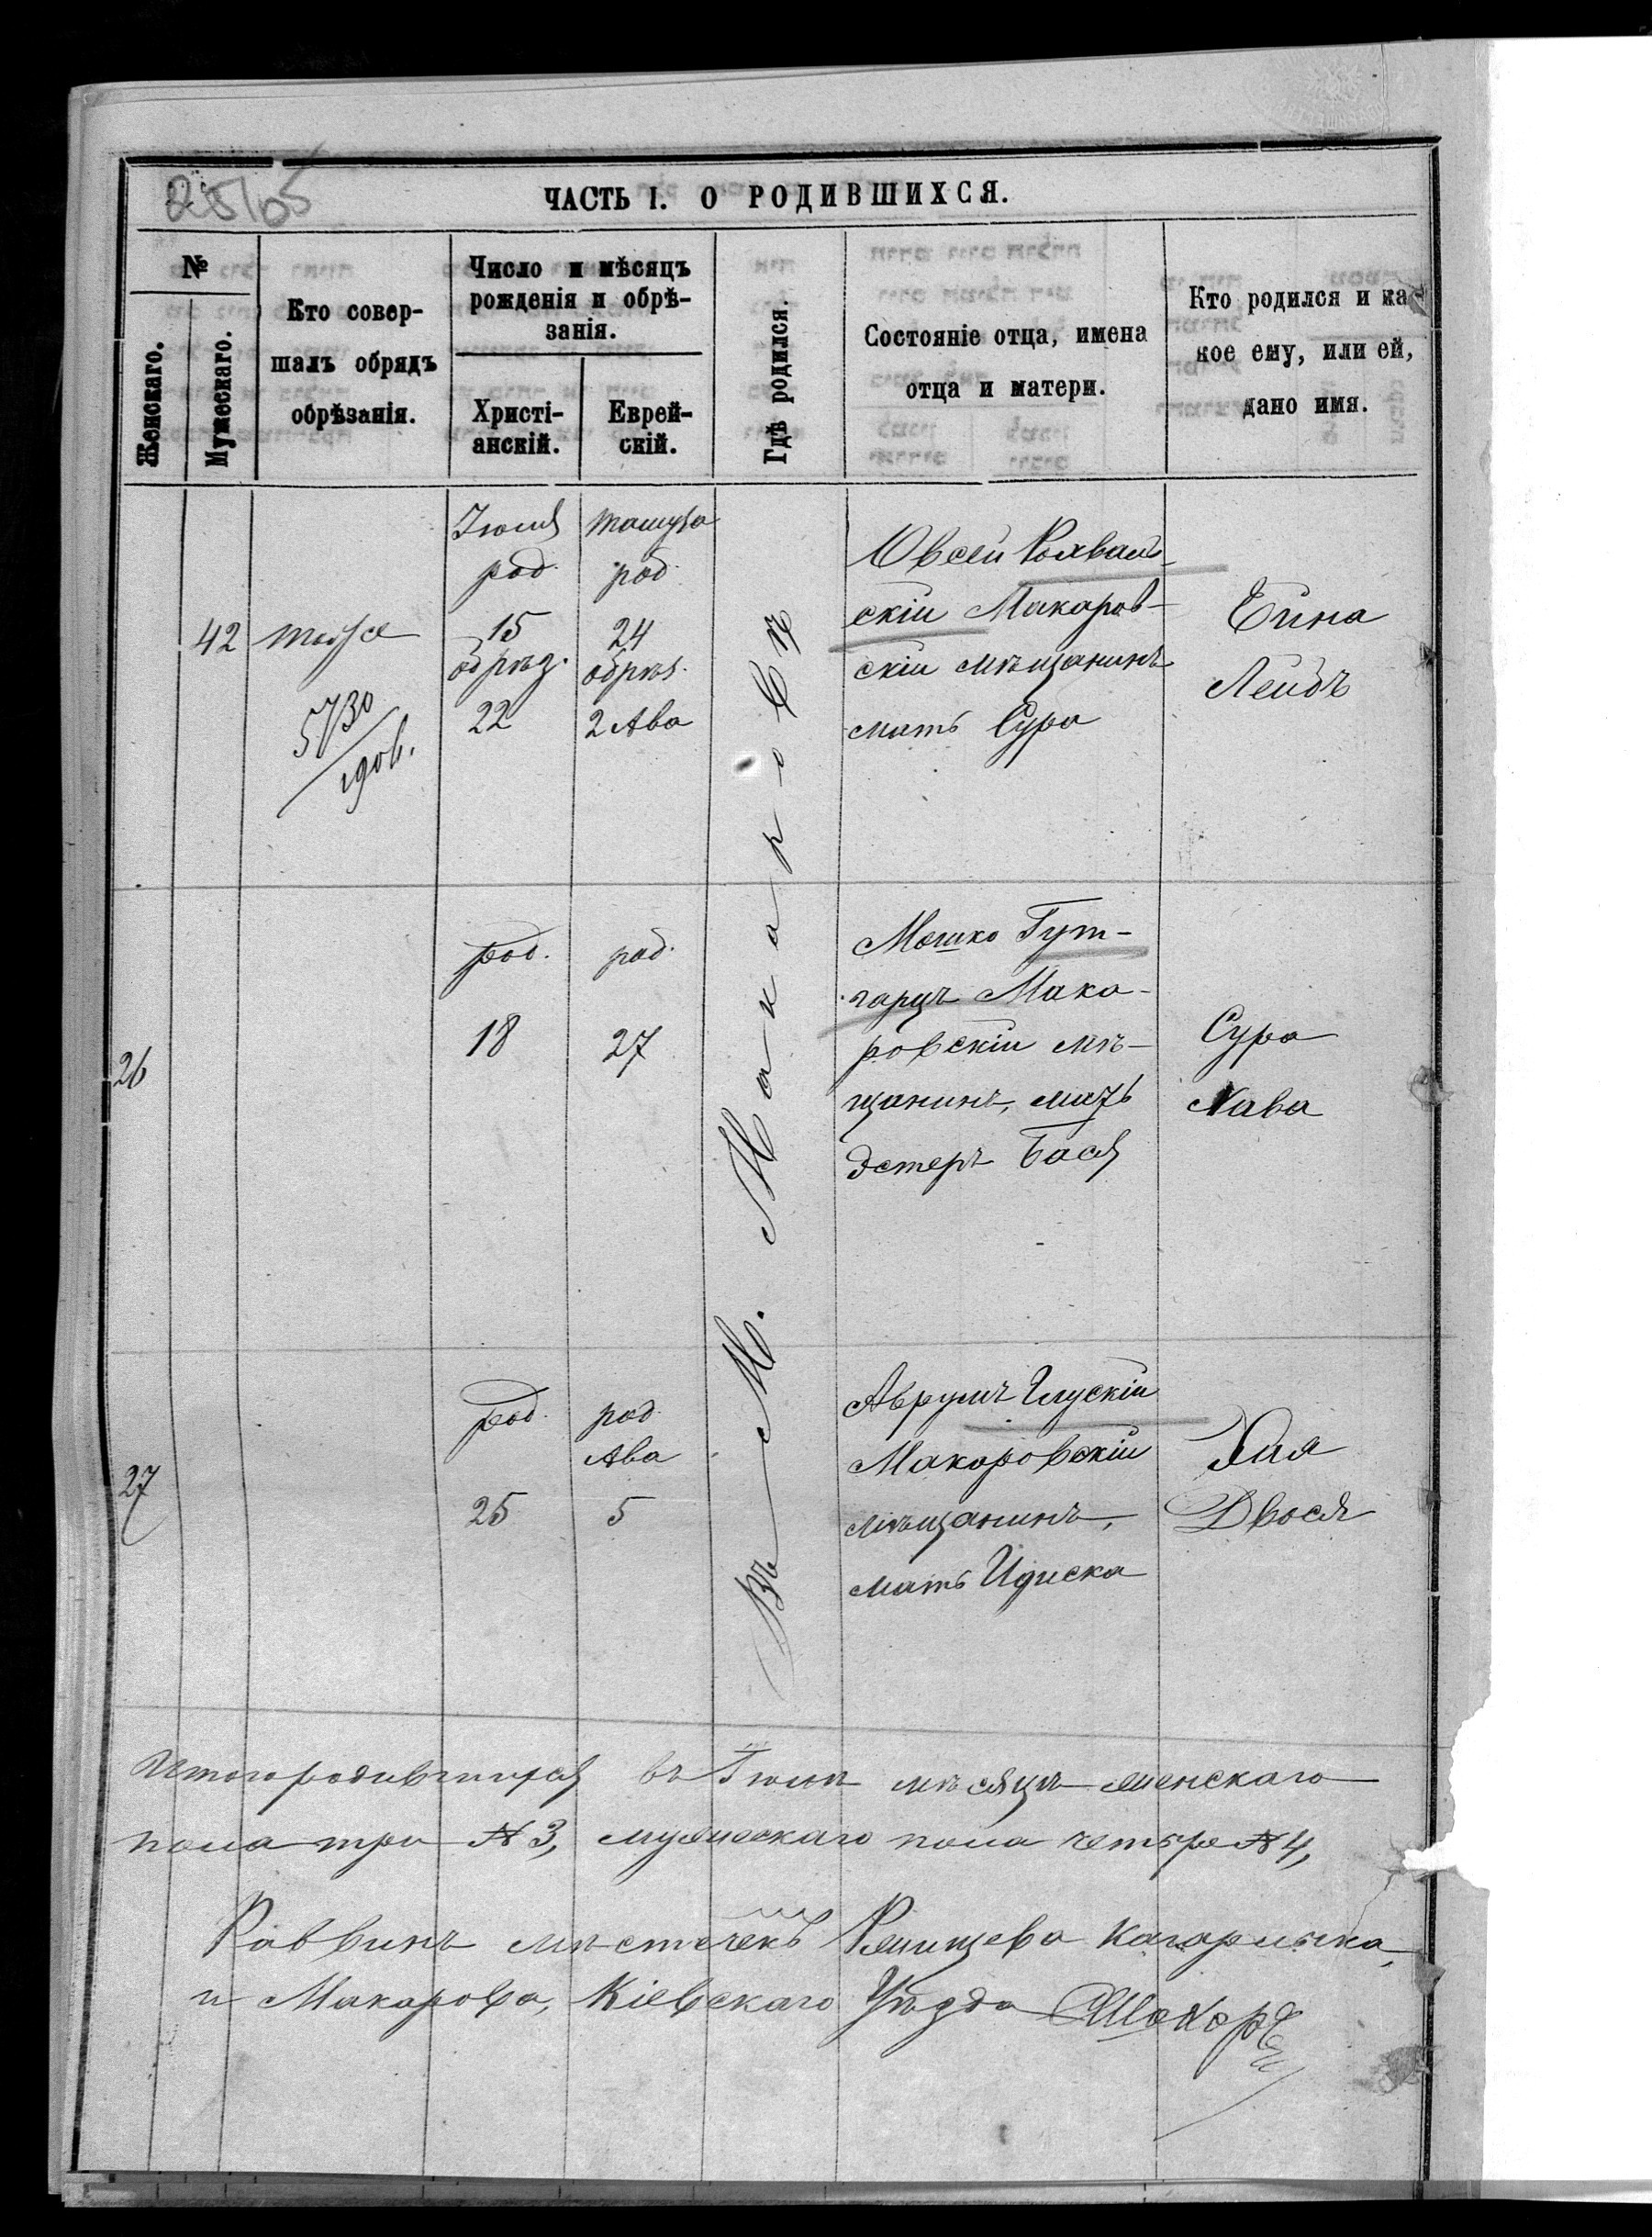 25/05
ЧАСТЬ I. О РОДИВШИХСЯ.
№
Женскаго.
Мужескаго.
Кто совер-
шалъ обрядъ
обрѣзанія.
Число и мѣсяцъ
рожденія и обрѣ-
занія.
Христі-
анскій.
Еврей-
скій.
Гдѣ родился.
Состояніе отца, имена
отца и матери.
Кто родился и ка-
кое ему, или ей,
дано имя.
42
5730
1906.
Іюля
род.
15
обрѣз.
22
Тамуза
род.
24
обрѣз.
2 Ава
Въ М. Макаровѣ
Овсей
скій Макаров-
скій мѣщанинъ
мать Сура
Лейбъ
26
род.
18
род.
27
Мошко Гут-
гарцъ Мака-
ровскій мѣ-
щанинъ, мать
Эстеръ Бася
Сура
Хава
27
род.
25
род.
Ава
5
Аврумъ Глускій
Макаровскій
мѣщанинъ,
мать
Хая
Двося
Итого родившихся въ Іюлѣ мѣсяцѣ женскаго
пола три № 3, мужескаго пола четыре № 4,
Раввинъ мѣстечекъ Ржищева Кагарлыка,
и Макарова, Кіевскаго Уѣзда